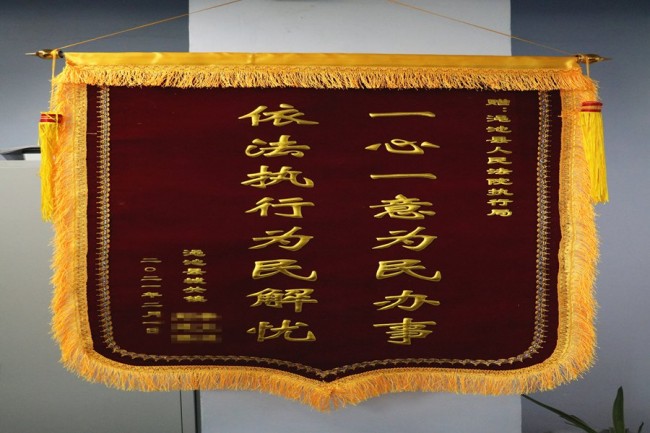 赠：渑池县人民法院执行局
一心一意为民办事
依法执行为民解忧
渑池县城关镇
二〇二一年二月一日